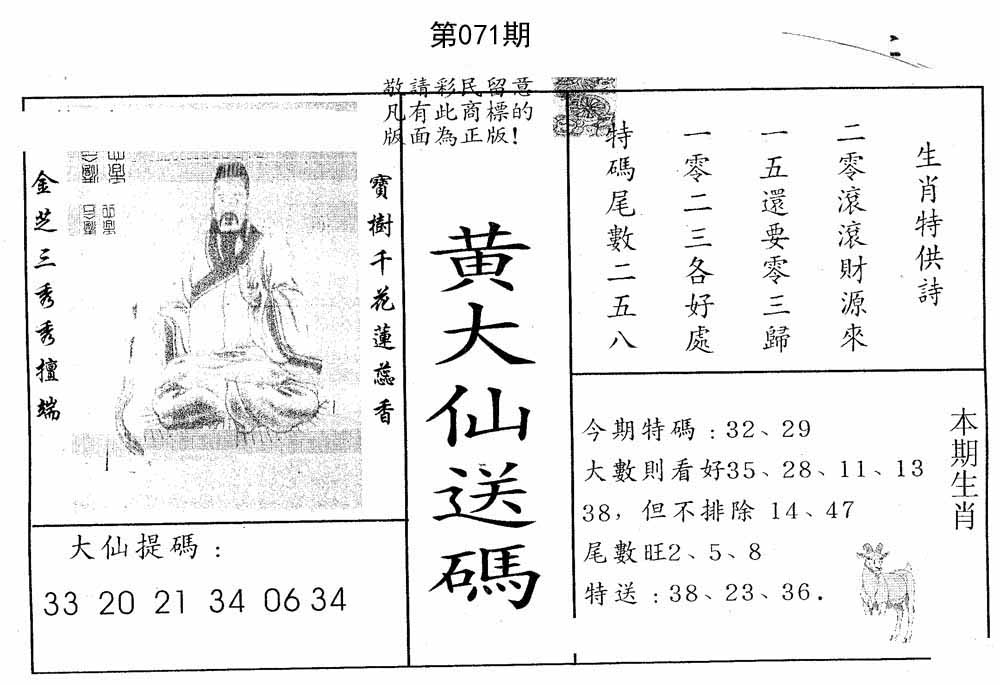 第071期
敬請彩民留意
凡有此商標的
版面為正版！
金芝三秀秀擅端
寶樹千花蓮蕊香
大仙提碼：
33 20 21 34 06 34
黄大仙送碼
生肖特供詩
二零滾滾財源來
一五還要零三歸
一零二三各好處
特碼尾數二五八
今期特碼：32、29
大數則看好35、28、11、13
38，但不排除 14、47
尾數旺2、5、8
特送：38、23、36．
本期生肖